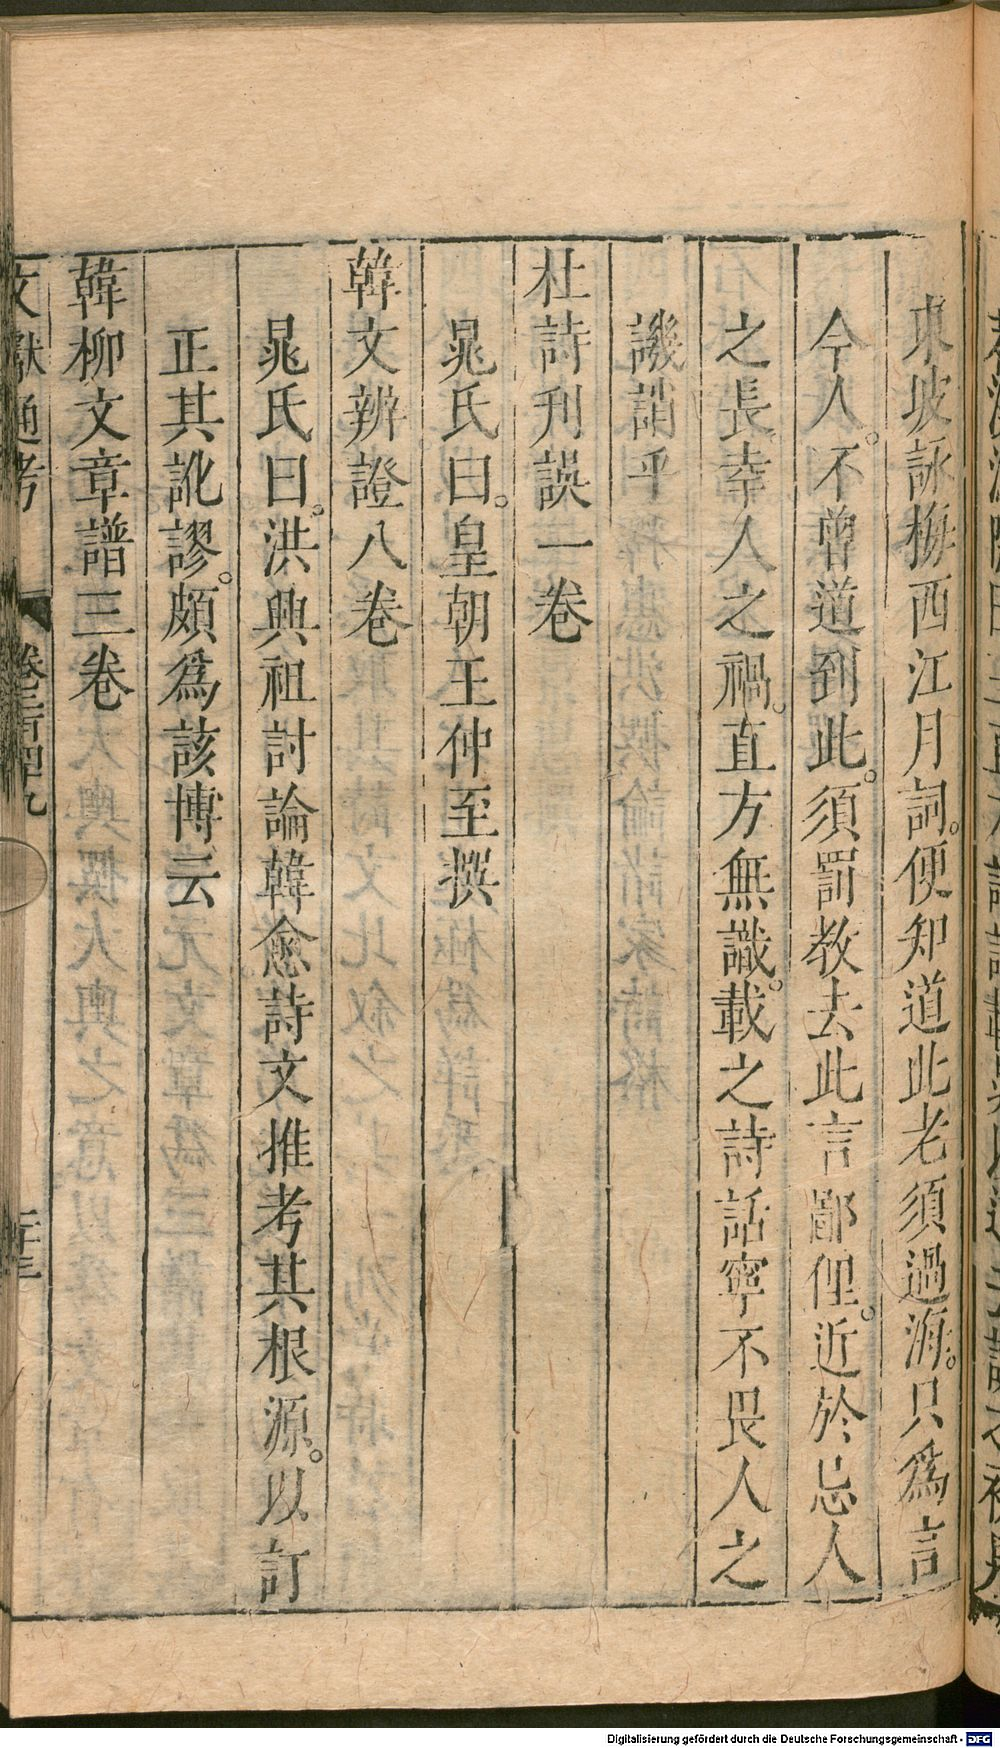 東坡詠梅西江月詞。便知道此老須過海。只爲言
今人。不曾道到此。須罰教去此言鄙俚。近於忌人
之長幸人之禍。直方無識。載之詩話寧不畏人之
譏誚乎
杜詩刋誤一卷
晁氏曰。皇朝王仲至撰
韓文辨證八卷
晁氏曰。洪興祖討論韓愈詩文推考其根源。以訂
正其訛謬。頗爲該博云
韓柳文章譜三卷
文獻通考 卷二百四十九 二十三
Digitalisierung gefördert durch die Deutsche Forschungsgemeinschaft - DFG